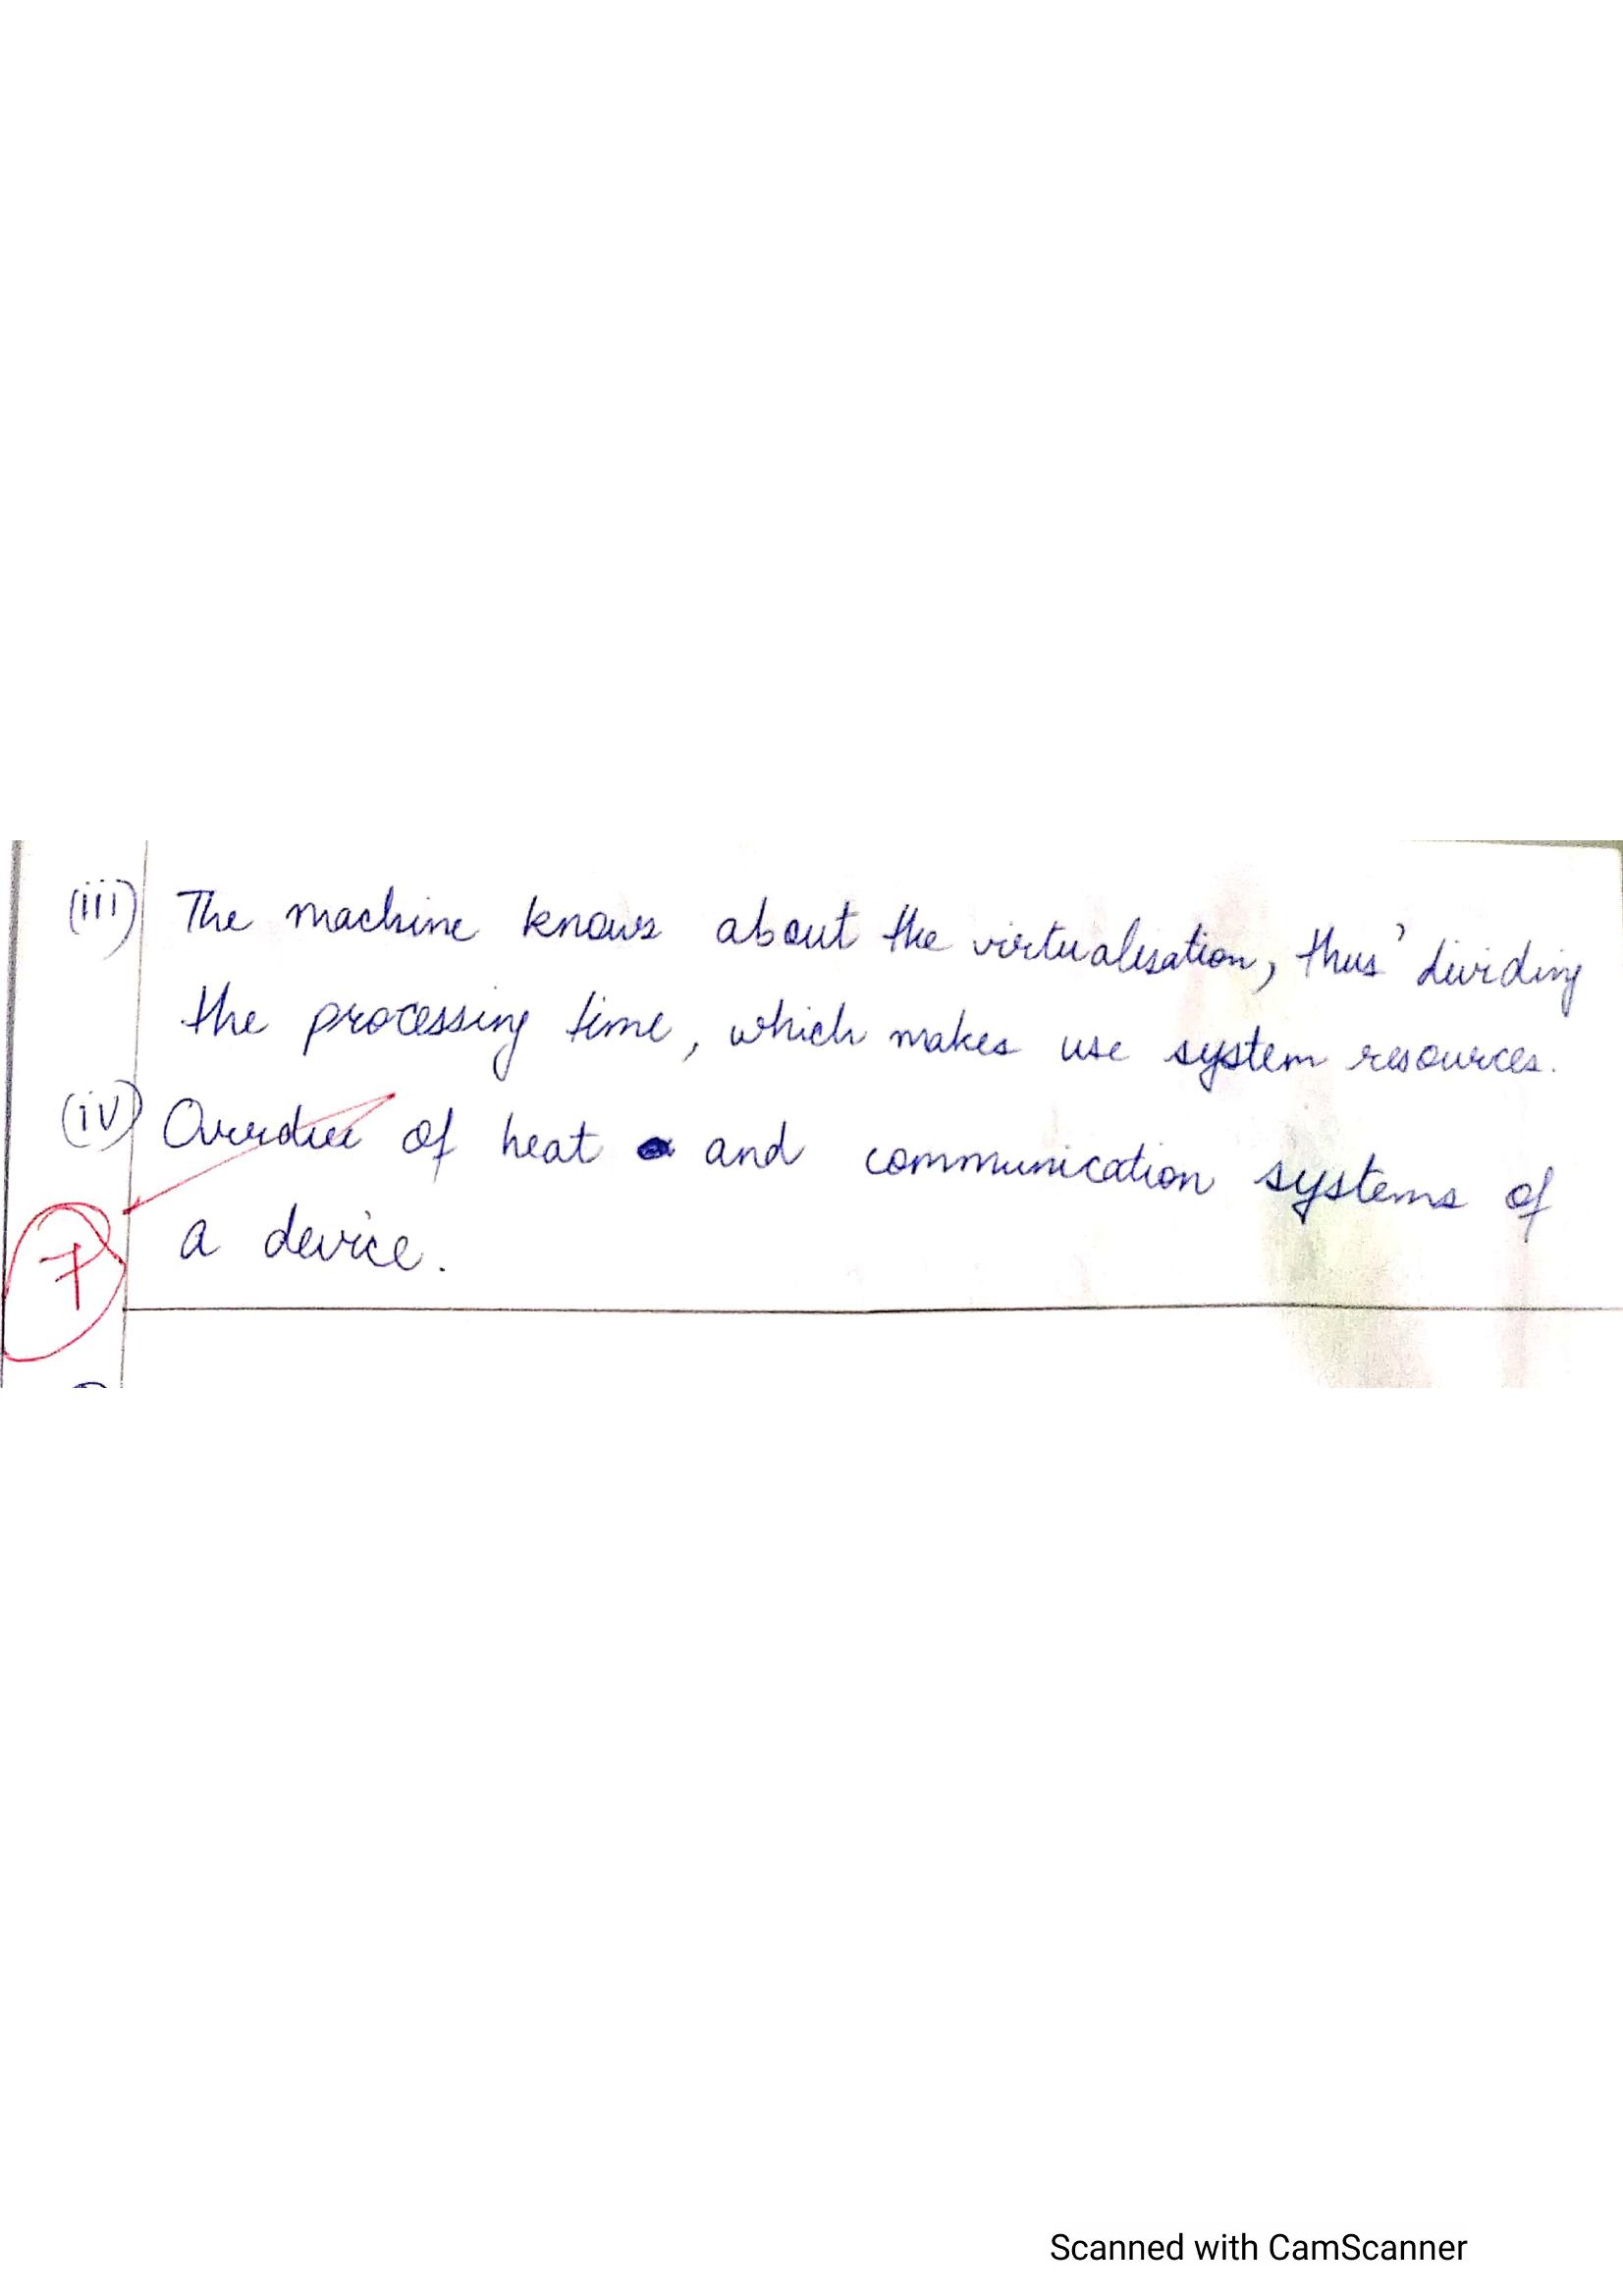 (iii) The machine knows about the virtualisation, thus dividing
the processing time, which makes use system resources.
(iv) of heat and communication systems of
a device.
7
Scanned with CamScanner